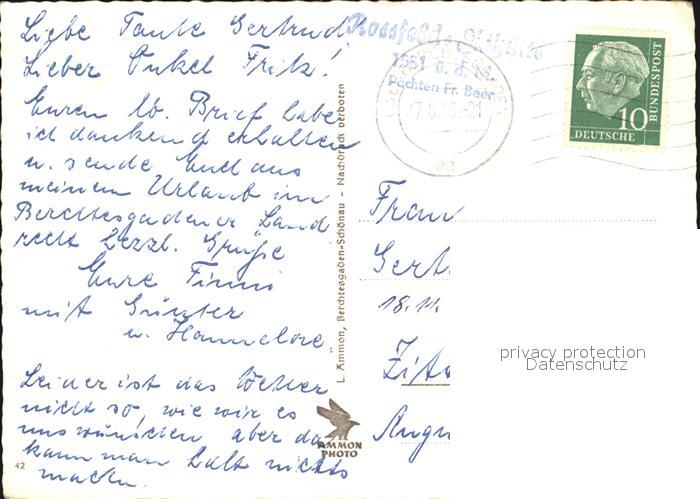 Liebe Tante Gertrud
Lieber Onkel Fritz!
Euren lb. Brief habe
ich dankend erhalten
u. sende Euch aus
meinem Urlaub im
Berchtesgadener Land
recht herzl. Grüße
Eure Finni
mit Günter
u. Hannelore.
Leider ist das Wetter
nicht so, wie wir es
uns wünschen aber da
kann man halt nichts
machen.
42
L. Ammon, Berchtesgaden-Schönau - Nachdruck verboten
AMMON
PHOTO
1551 ü. d. M.
Pächten Fr. Beer
10
DEUTSCHE
BUNDESPOST
Frau
Gert
18.11.
privacy protection
Datenschutz